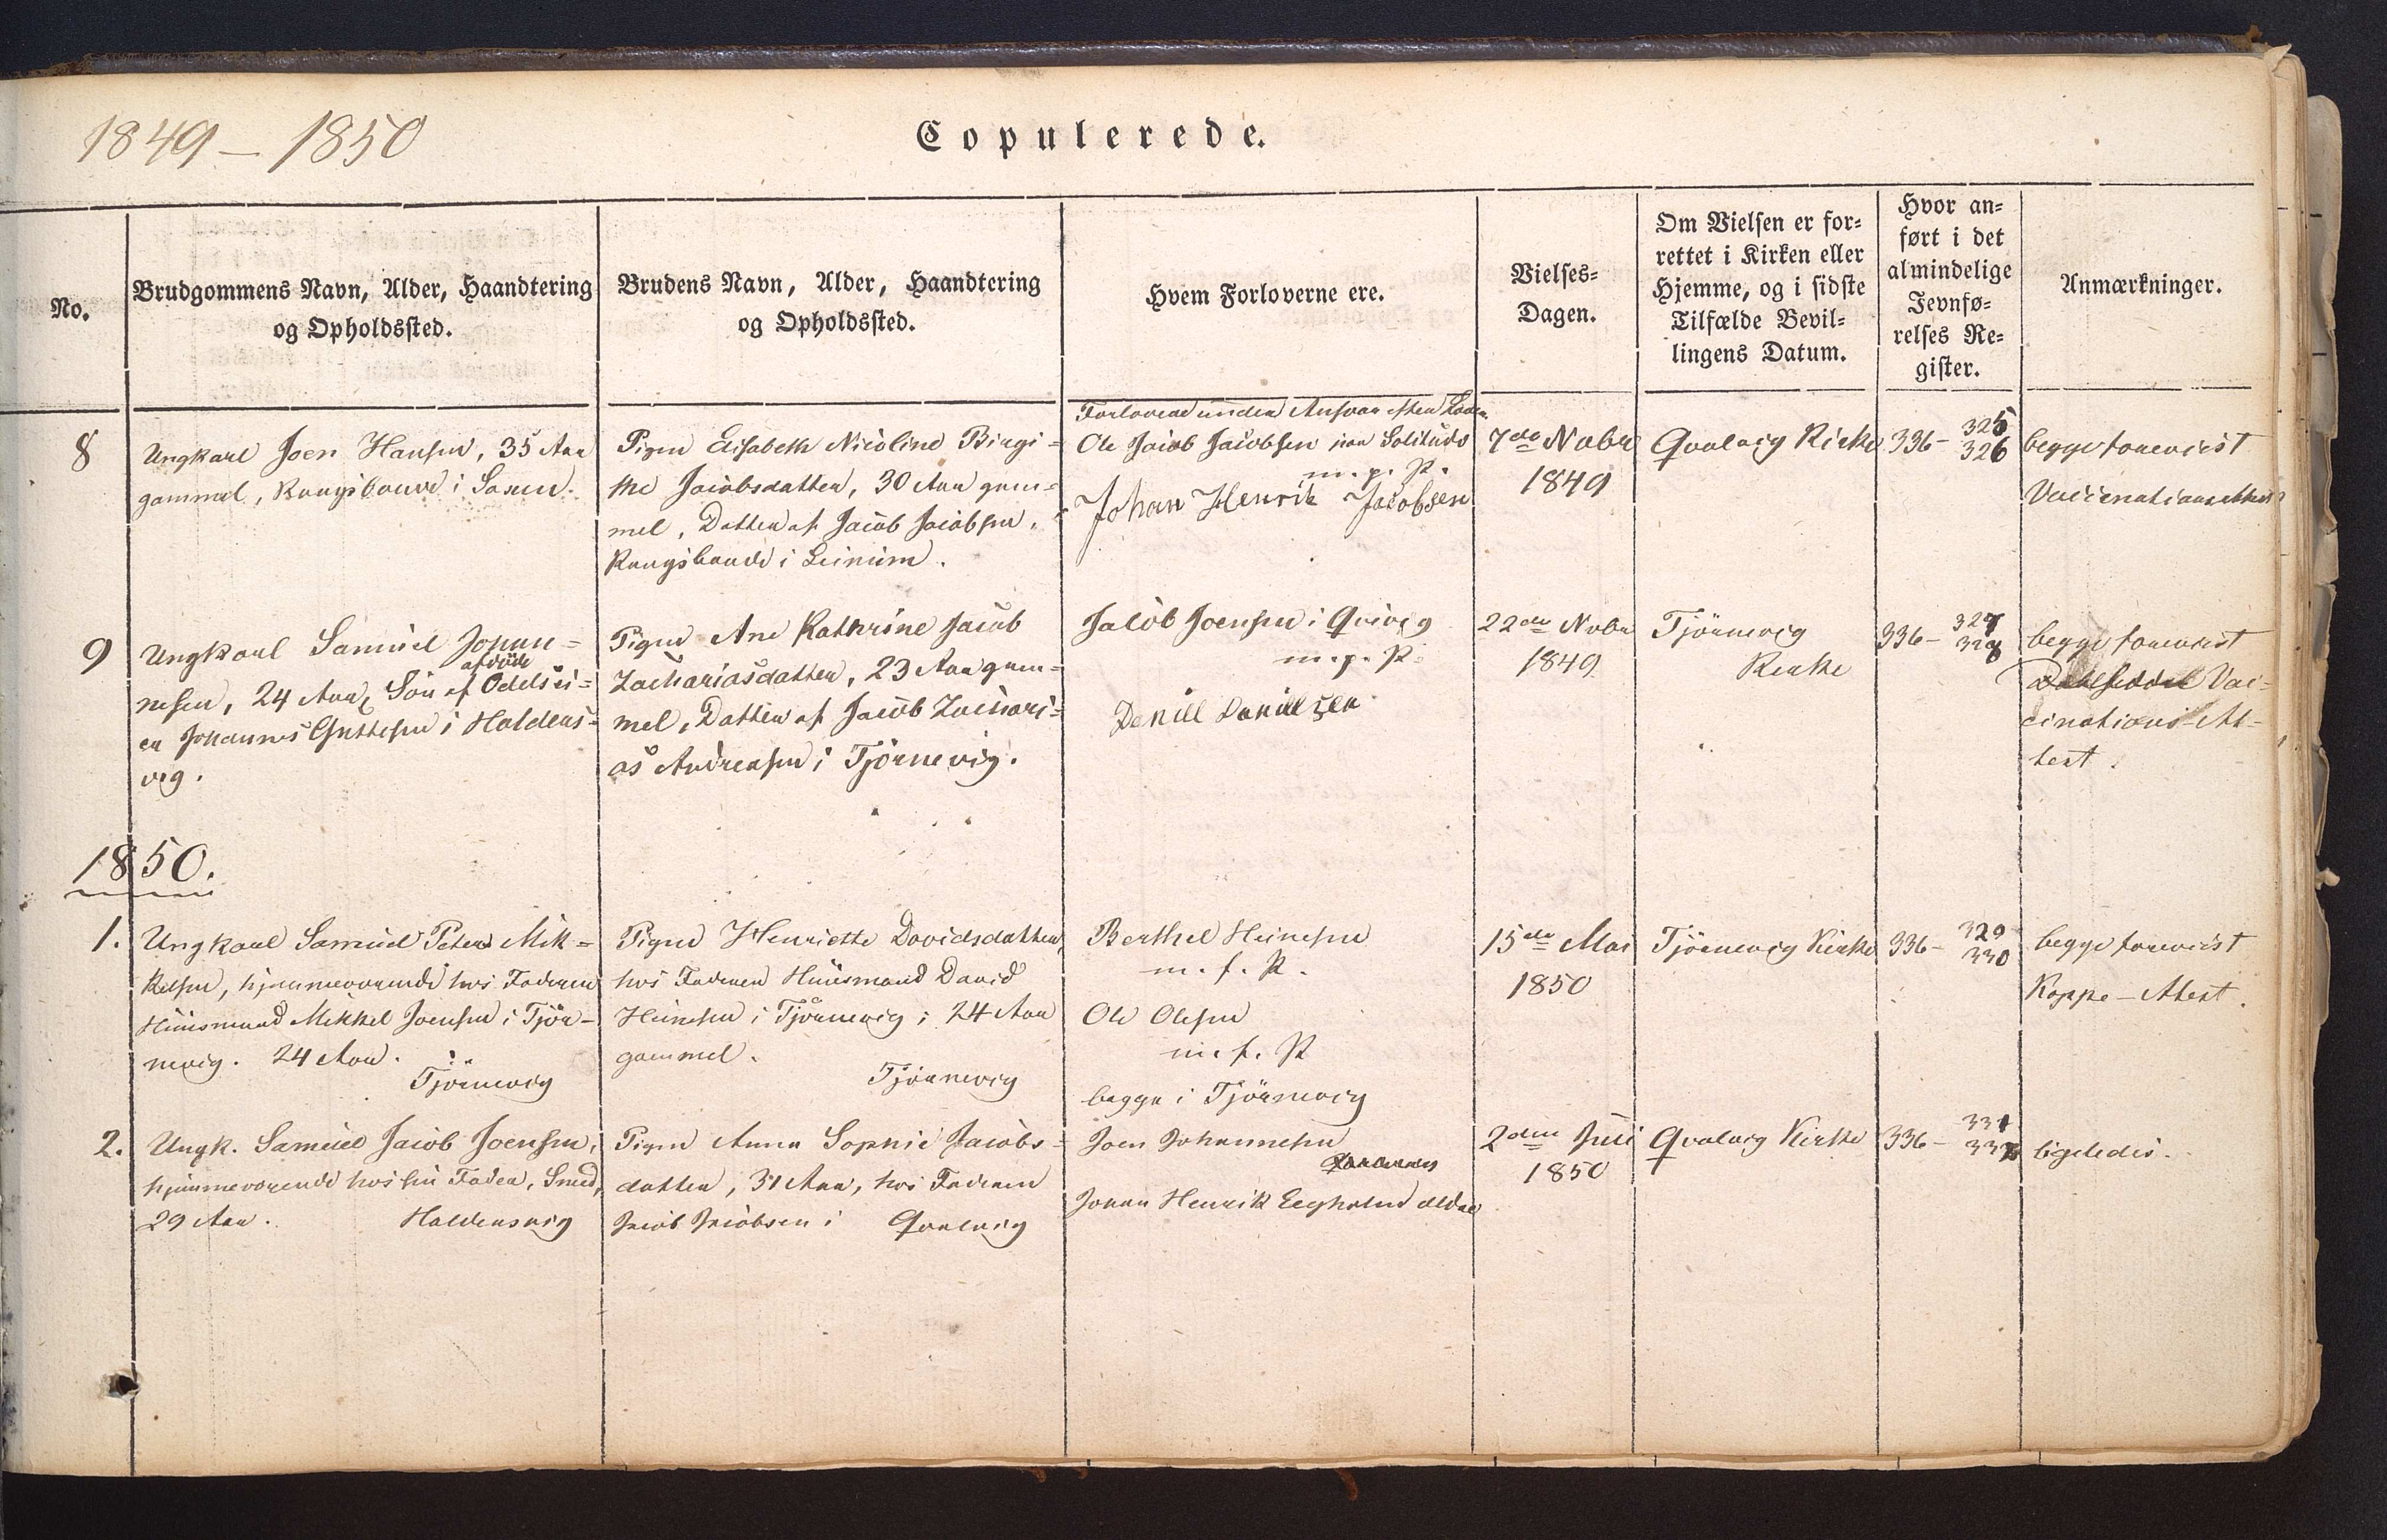 1849 – 1850
Copulerede.
No.
Brudgommens Navn, Alder, Haandtering
og Opholdssted.
Brudens Navn, Alder, Haandtering
og Opholdssted.
Hvem Forloverne ere.
Vielses=
Dagen.
Om Vielsen er for=
rettet i Kirken eller
Hjemme, og i sidste
Tilfælde Bevil=
lingens Datum.
Hvor an=
ført i det
almindelige
Jevnfø=
relses Re=
gister.
Anmærkninger.
8
Ungkarl Joen Hansen, 35 Aar
gammel, Kongsbonde i Saxen.
Pigen Elisabeth Nicoline Birgi=
the Jacobsdatter, 30 Aar gam=
mel, Datter af Jacob Jacobsen,
Kongsbonde i Leinum.
Forlovere under Ansvar efter Loven
Ole Jacob Jacobsen paa Solitude
m. p. P.
Johan Henrik Jacobsen
7de Novbr
1849
Qvalvig Kirke
336 – 325
326
begge forevist
Vaccinationsattest
9
Ungkarl Samuel Johan=
nesen, 24 Aar, Søn af afdøde Odelsei=
er Johannes Guttesen i Haldens=
vig.
Pigen Ane Kathrine Jacob
Zachariasdatter, 23 Aar gam=
mel, Datter af Jacob Zachari=
as Andreasen i Tjörnevig.
Jacob Joensen i Qvivig
m. p. P.
Daniel Danielsen
22de Novbr
1849
Tjörnevig
Kirke
336 – 327
328
begge forevist
Vac=
cinations-At=
test.
1850.
1.
Ungkarl Samuel Peter Mik=
kelsen, hjemmeværende hos Faderen
Huusmand Mikkel Joensen i Tjör=
nevig. 24 Aar.
Tjörnevig
Pigen Henriette Davidsdatter,
hos Faderen Huusmand David
Heinesen i Tjörnevig; 24 Aar
gammel.
Tjörnevig
Berthel Heinesen
m. f. P.
Ole Olesen
m. f. P.
begge i Tjörnevig
15de Mai
1850
Tjörnevig Kirke
336 – 329
330
begge forevist
Koppe-Attest.
2.
Ungk. Samuel Jacob Joensen,
hjemmeværende hos sin Fader, Smed,
29 Aar.
Haldensvig
Pigen Anna Sophie Jacobs=
datter, 31 Aar, hos Faderen
Jacob Jacobsen i Qvalvig
Joen Johannesen
Johan Henrik Eegholm ældre
2den Juli
1850
Qvalvig Kirke
336 – 331
332
ligeledes.